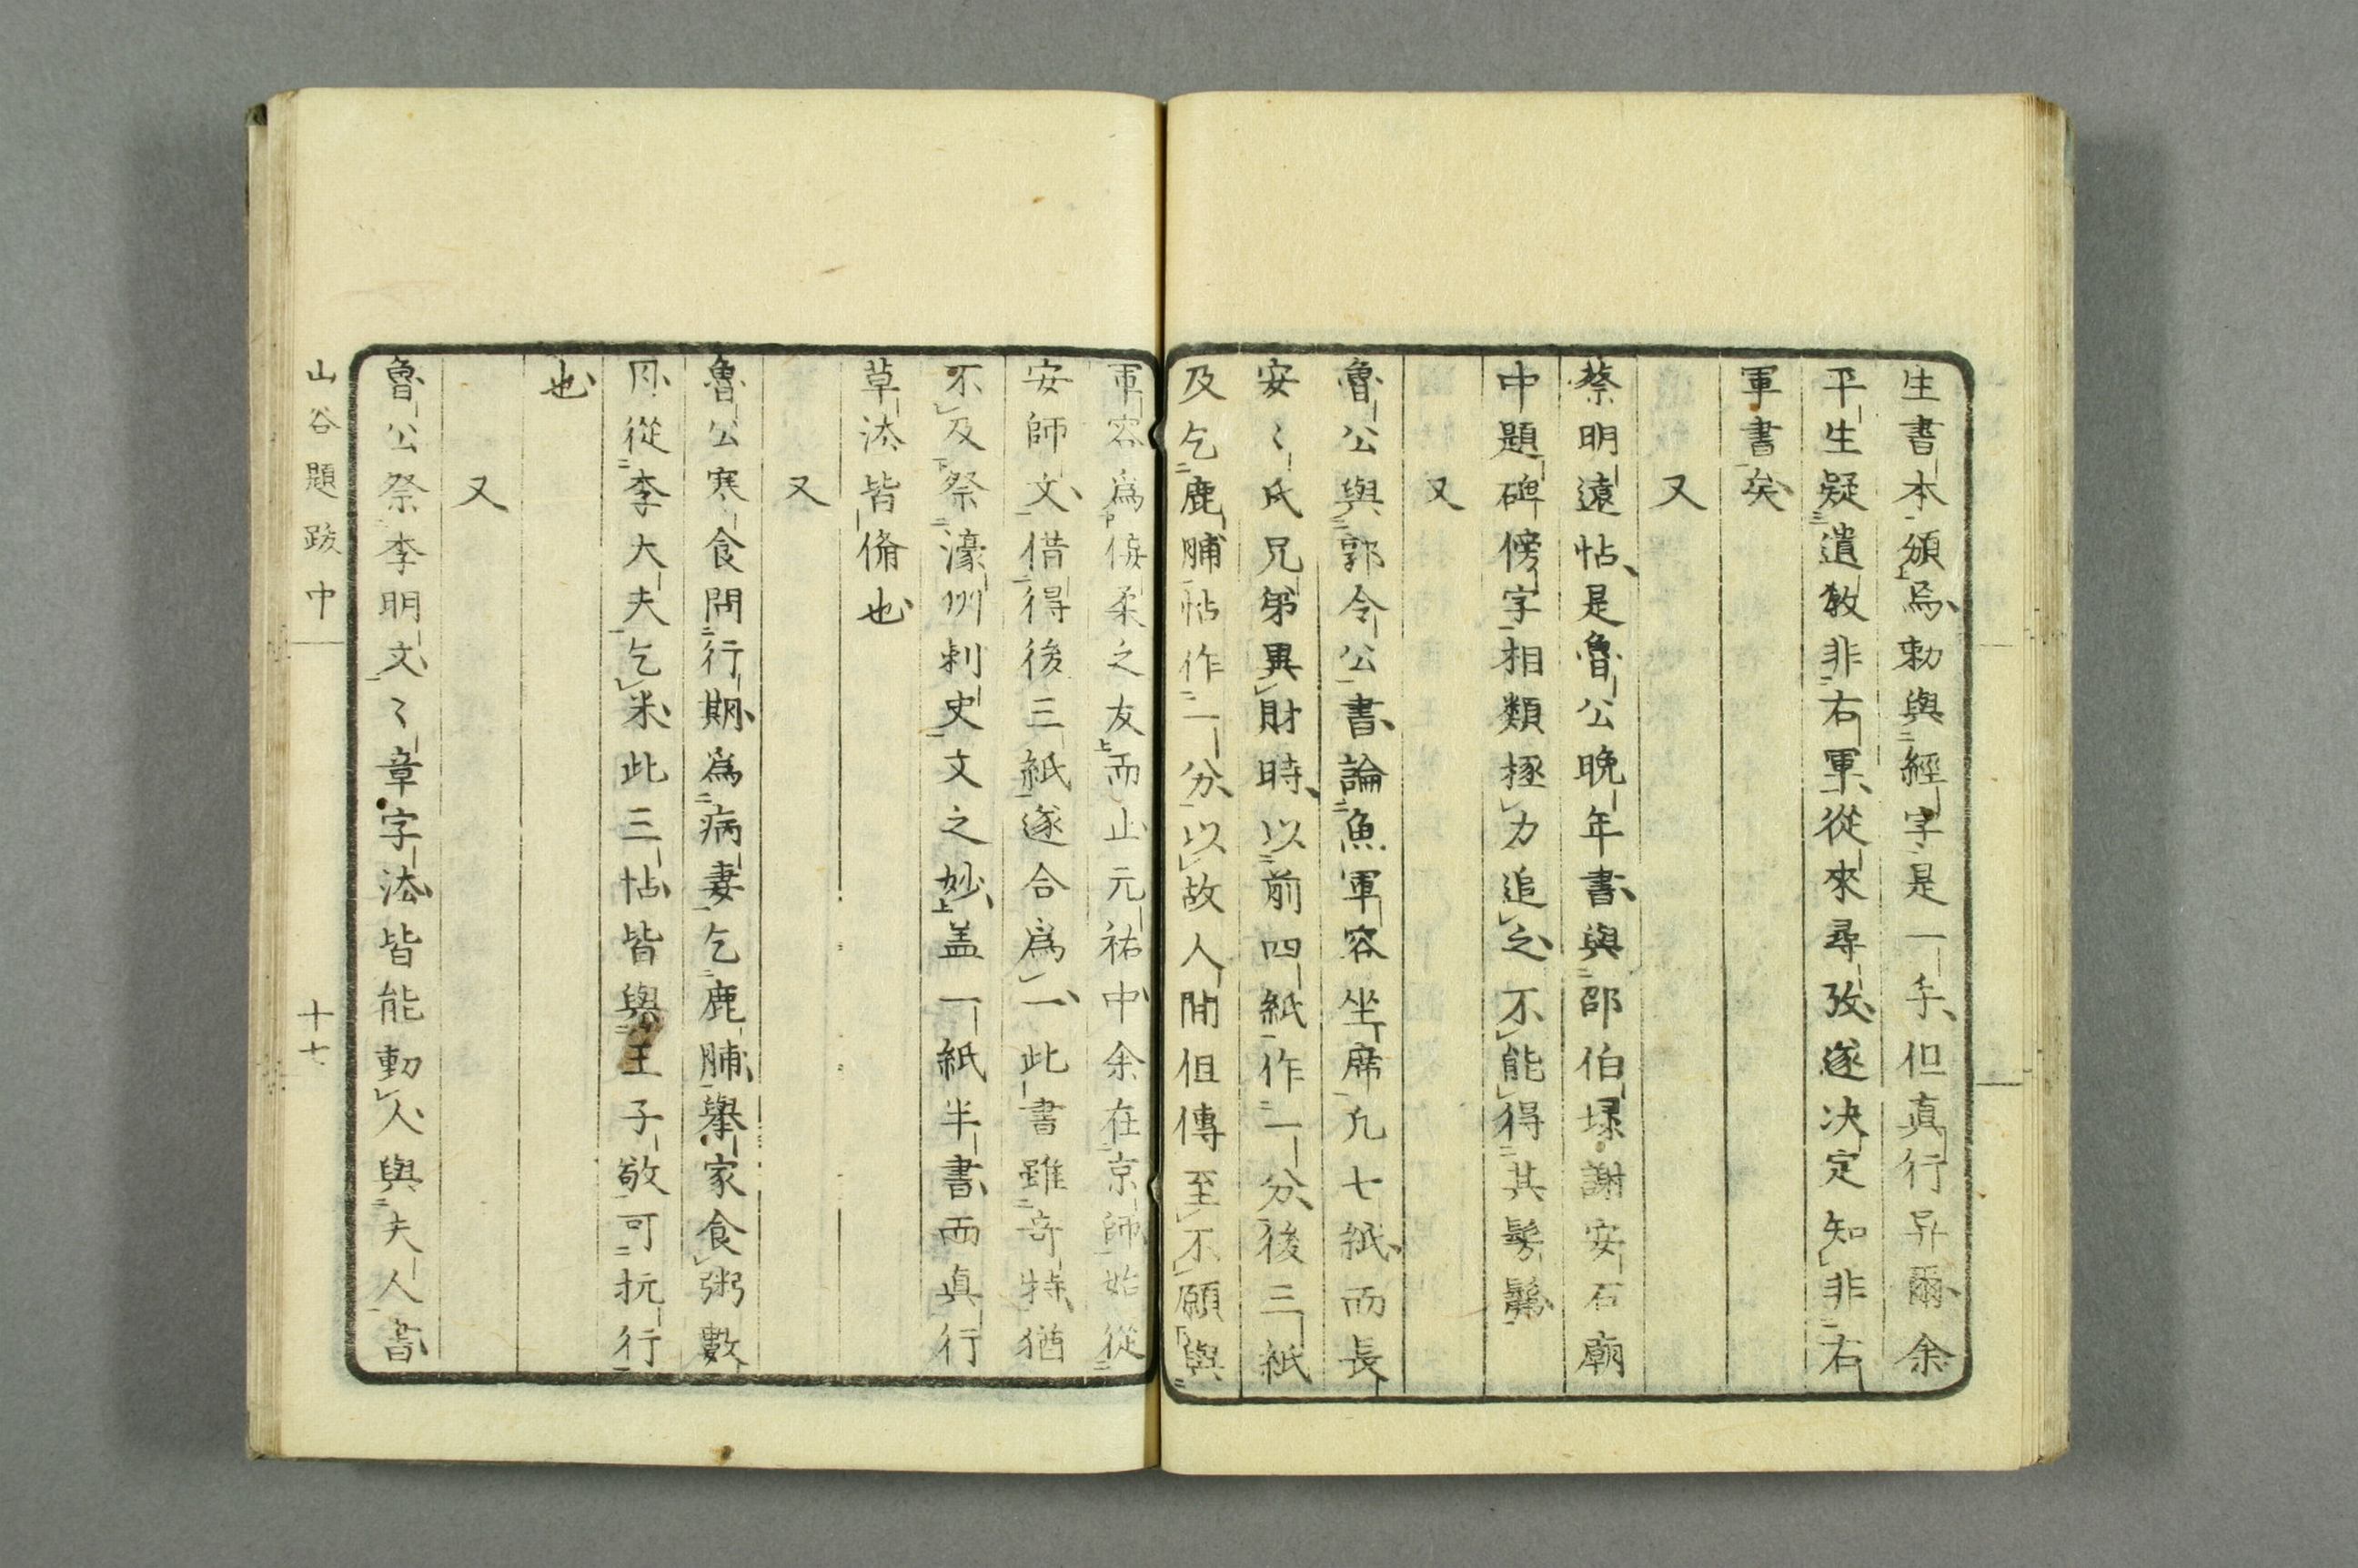 生書本頒焉勅與經字是一手但真行异爾余
平生疑遺教非右軍從來尋攷遂决定知非右
軍書矣
又
蔡明遠帖是魯公晩年書與邵伯埭謝安石廟
中題碑傍字相類極力追之不能得其髣髴
又
魯公與郭令公書論魚軍容坐席凢七紙而長
安〻氏兄弟異財時以前四紙作一分後三紙
及乞鹿脯帖作一分以故人間但傳至不願與
軍容爲佞柔之友而止元祐中余在京師始從
安師文借得後三紙遂合爲一此書雖竒特猶
不及祭濠州刺史文之妙盖一紙半書而真行
草法皆俻也
又
魯公寒食問行期爲病妻乞鹿脯舉家食粥數
月從李大夫乞米此三帖皆與王子敬可抗行
也
又
魯公祭李明文〻章字法皆能動人與夫人書
山谷題跋中
十七